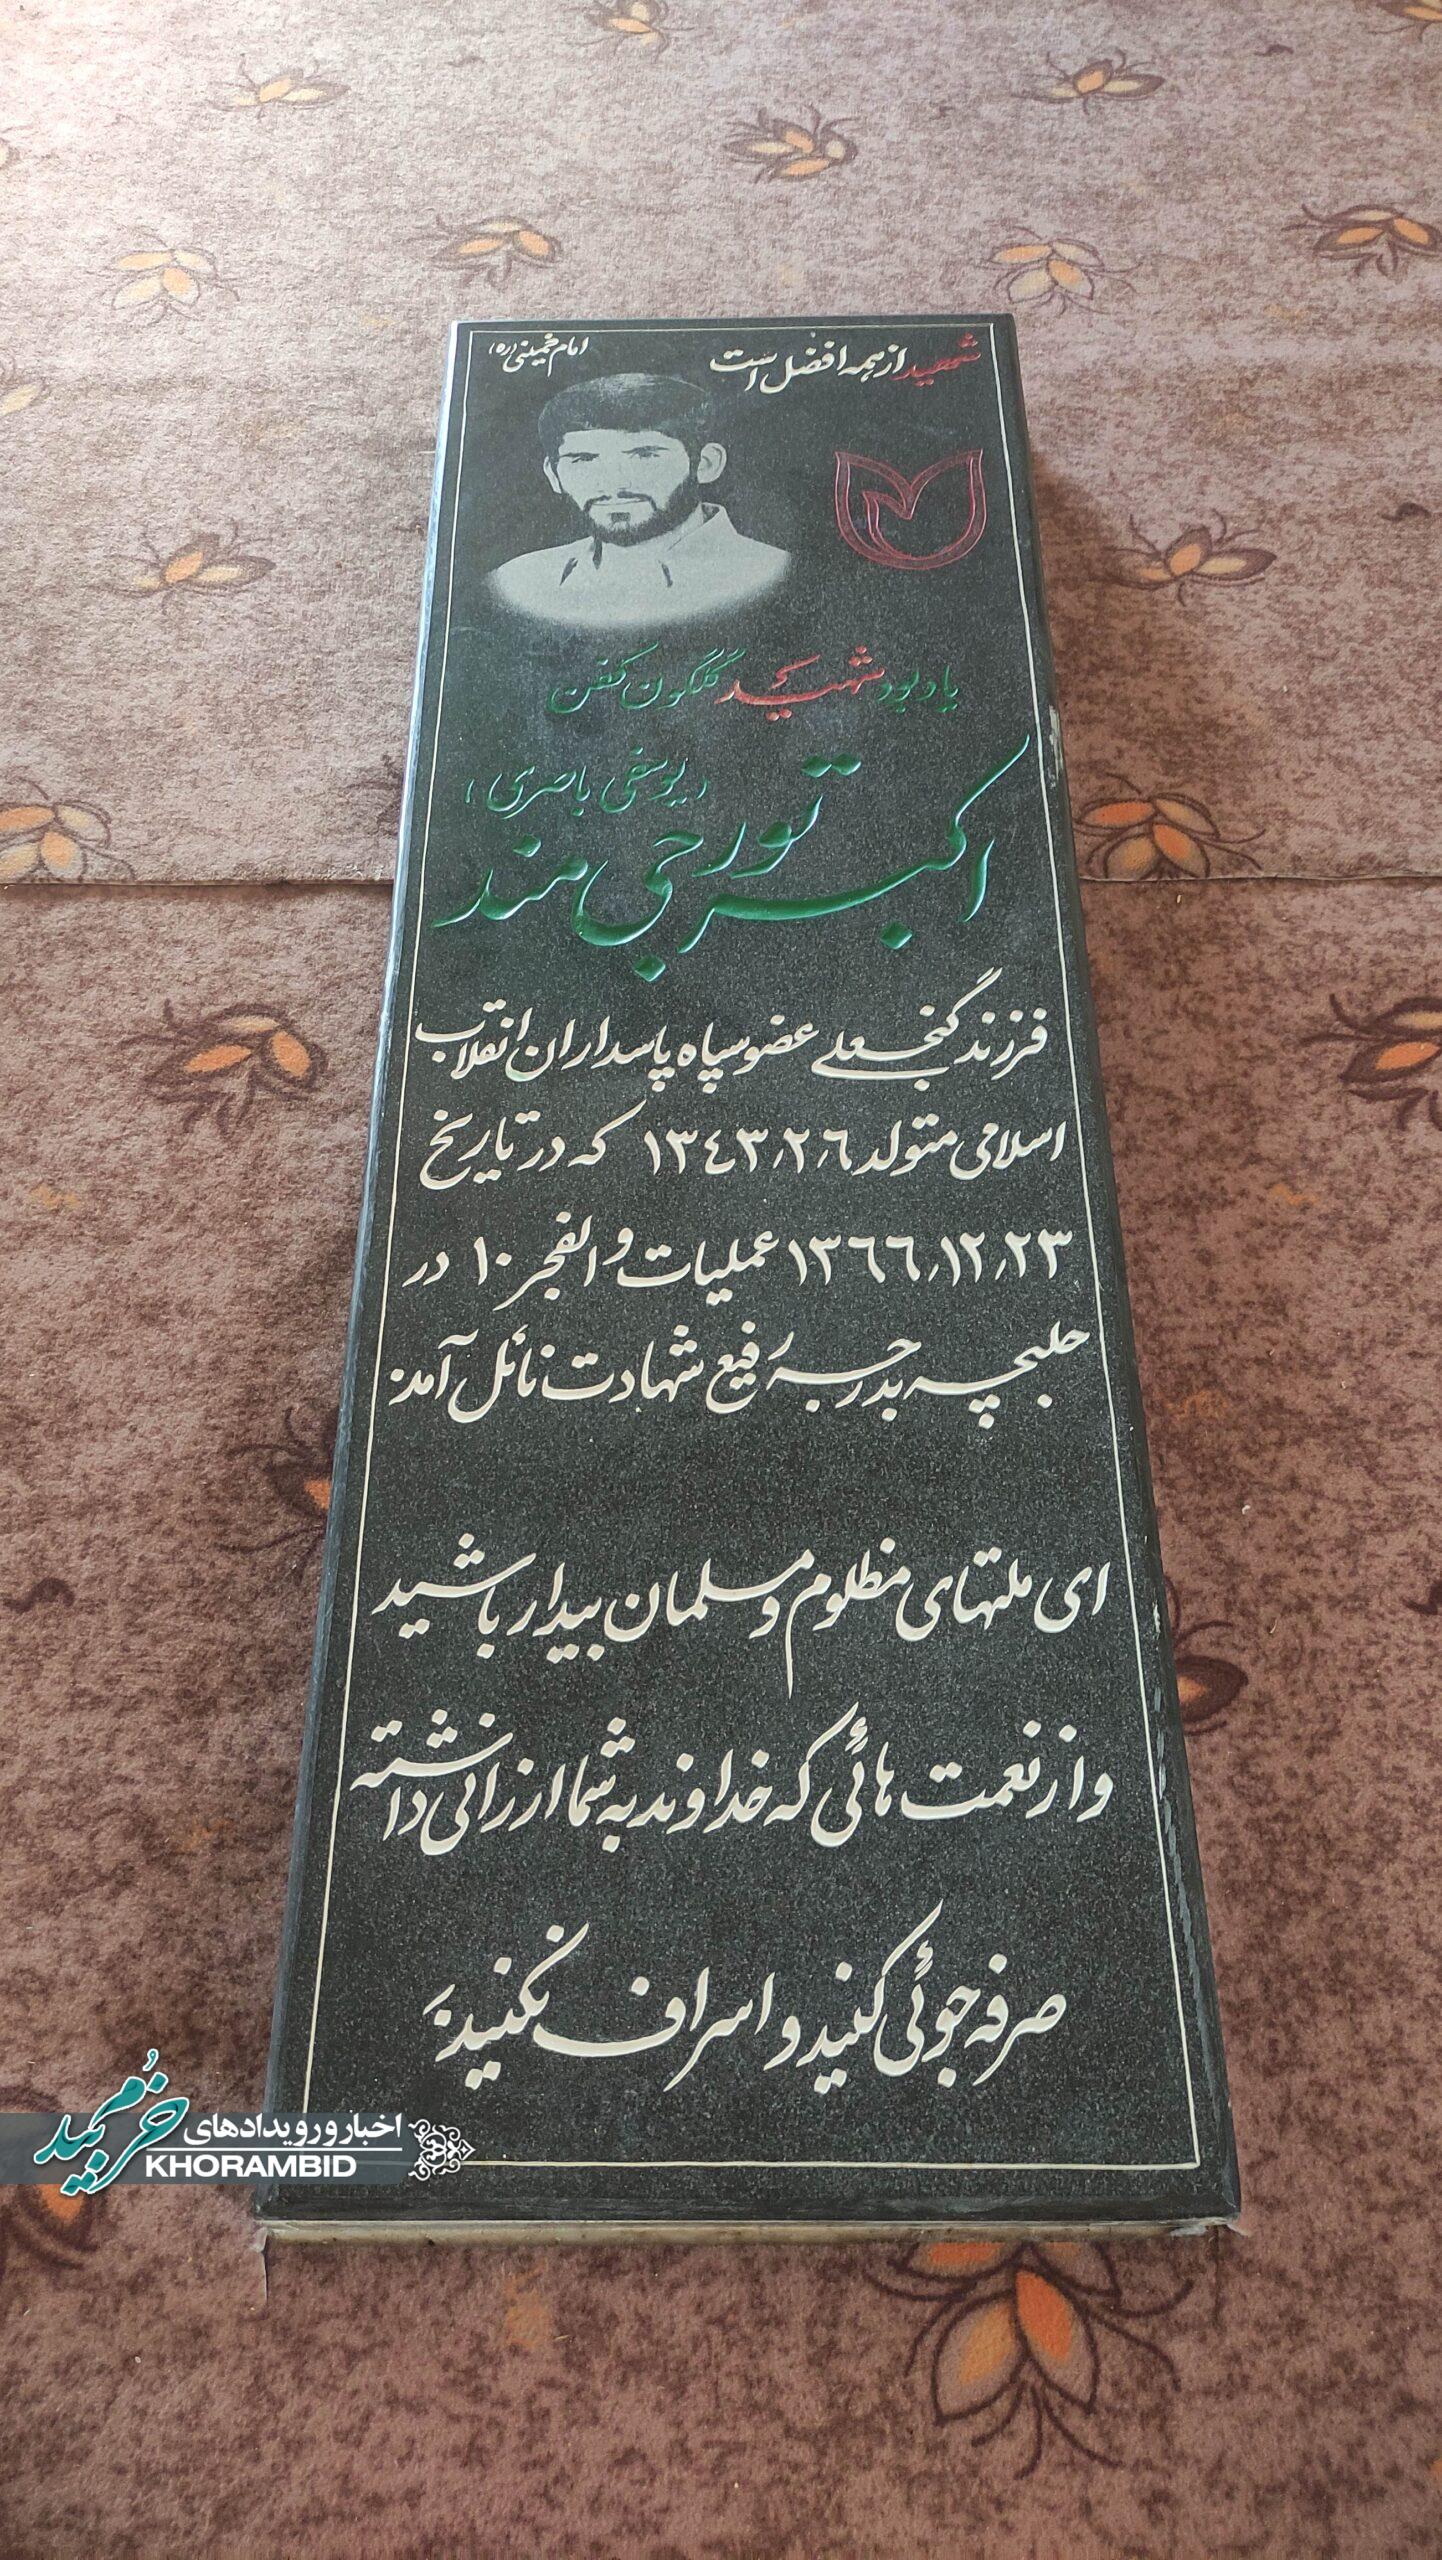 شهید از همه افضل است
امام خمینی (ره)
یادبود شهید گلگون کفن
(یوسفی باصری)
اکبر تورجی مند
فرزند گنجعلی عضو سپاه پاسداران انقلاب
اسلامی متولد ۱۳۴۳٫۲٫۶ که در تاریخ
۱۳۶۶٫۱۲٫۲۳ عملیات والفجر ۱۰ در
حلبچه بدرجه رفیع شهادت نائل آمد.
ای ملتهای مظلوم و مسلمان بیدار باشید
و از نعمت هائی که خداوند به شما ارزانی داشته
صرفه جوئی کنید و اسراف نکنید.
اخبار و رویدادهای
خرمبید
KHORAMBID